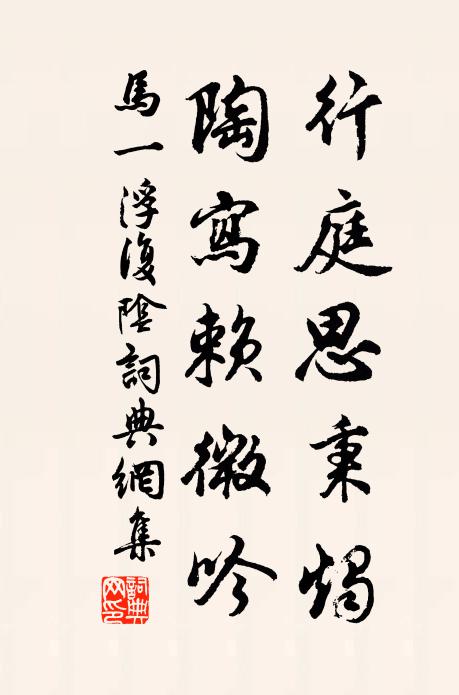 行庭思秉燭
陶寫賴微吟
馬一浮復陰詞典網集
詞典網印